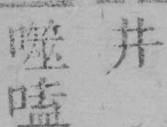 井
噬嗑